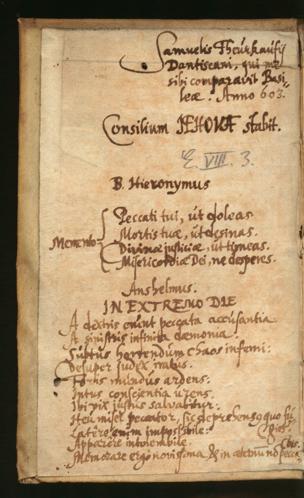 Samuelis Theürkaüfij
Dantiscani, qui me
sibi comparavit Basi-
leæ. Anno 603.
Consilium JEHOVÆ stabit.
E. VIII. 3.
B. Hieronymus
Memento
Peccati tui, ut doleas.
Mortis tuæ, ut desinas.
Divinæ justiciæ, ut timeas.
Misericordiæ Dei, ne desperes.
Anshelmus.
IN EXTREMO DIE
A dextris erunt peccata accusantia
A sinistris infinita dæmonia:
Subtus horrendum chaos inferni:
Desuper Judex iratus.
Foris mundus ardens:
Intus conscientia urens.
Ibi vix justus salvabitur.
Heu misel peccator, sic deprehensq; quo fu-
gies.
Latere enim impossibile:
Apparere intolerabile.
Memorare ergo novissima & in æternu no pecca-
bis.